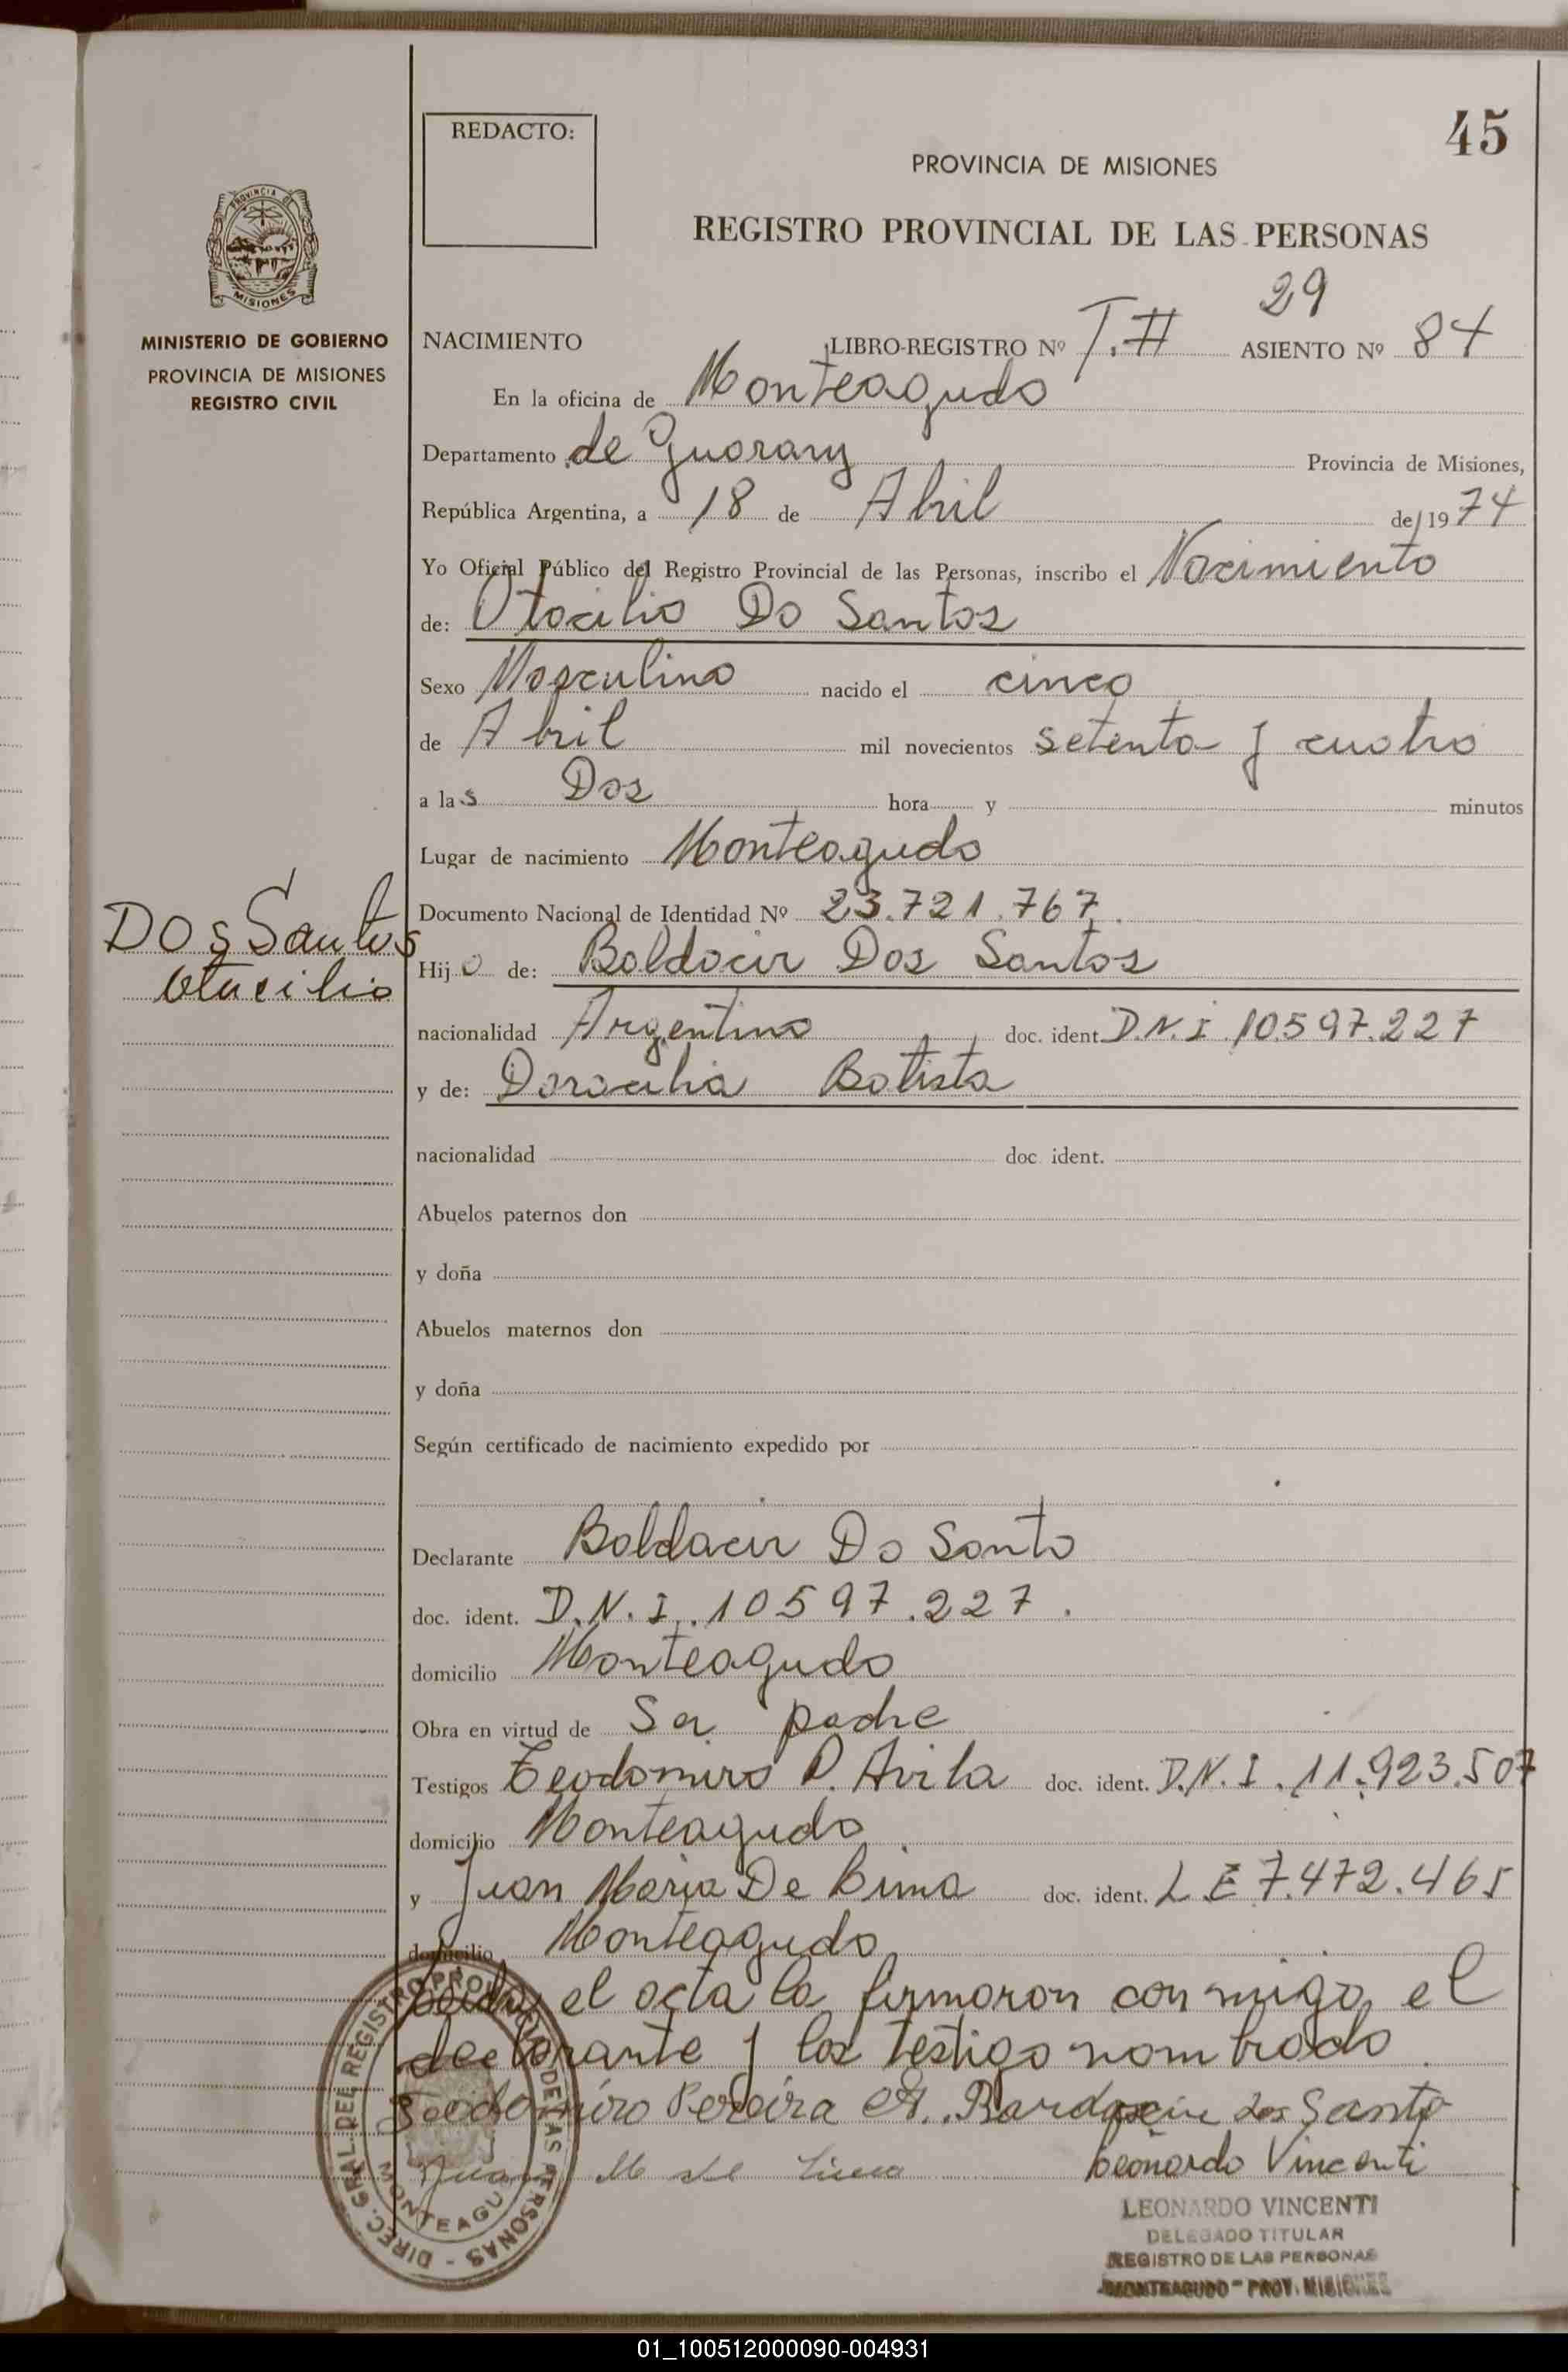 45
REDACTO:
PROVINCIA DE MISIONES
REGISTRO PROVINCIAL DE LAS PERSONAS
PROVINCIA DE
MISIONES
MINISTERIO DE GOBIERNO
PROVINCIA DE MISIONES
REGISTRO CIVIL
29
NACIMIENTO LIBRO-REGISTRO Nº T. II ASIENTO Nº 84
En la oficina de Monteagudo
Departamento de Guarany Provincia de Misiones,
República Argentina, a 18 de Abril de 1974
Yo Oficial Público del Registro Provincial de las Personas, inscribo el Nacimiento
de: Otacilio Do Santos
Sexo Masculino nacido el cinco
de Abril mil novecientos setenta y cuatro
a las Dos hora y minutos
Lugar de nacimiento Monteagudo
Documento Nacional de Identidad Nº 23.721.767.
DOs Santos
Otacilio
Hijo de: Baldacir Dos Santos
nacionalidad Argentino doc. ident. D.N.I. 10.597.227
y de: Doracilia Batista
nacionalidad doc. ident.
Abuelos paternos don
y doña
Abuelos maternos don
y doña
Según certificado de nacimiento expedido por
Declarante Baldacir Do Santo
doc. ident. D.N.I. 10597.227.
domicilio Monteagudo
Obra en virtud de Ser padre
Testigos Teodomiro P. Avila doc. ident. D.N.I. 11.923.507
domicilio Monteagudo
y Juan Maria De Lima doc. ident. L E 7.472.465
domicilio Monteagudo
Leida el acta la firmaron conmigo el
declarante y los testigo nombrado.
Teodomiro Pereira A. Bardacir dos Santo
Juan M de Lima Leonardo Vincenti
LEONARDO VINCENTI
DELEGADO TITULAR
REGISTRO DE LAS PERSONAS
MONTEAGUDO - PROV. MISIONES
DIREC. GRAL. DEL REGISTRO PROVINCIAL DE LAS PERSONAS -
MONTEAGUDO
01_100512000090-004931